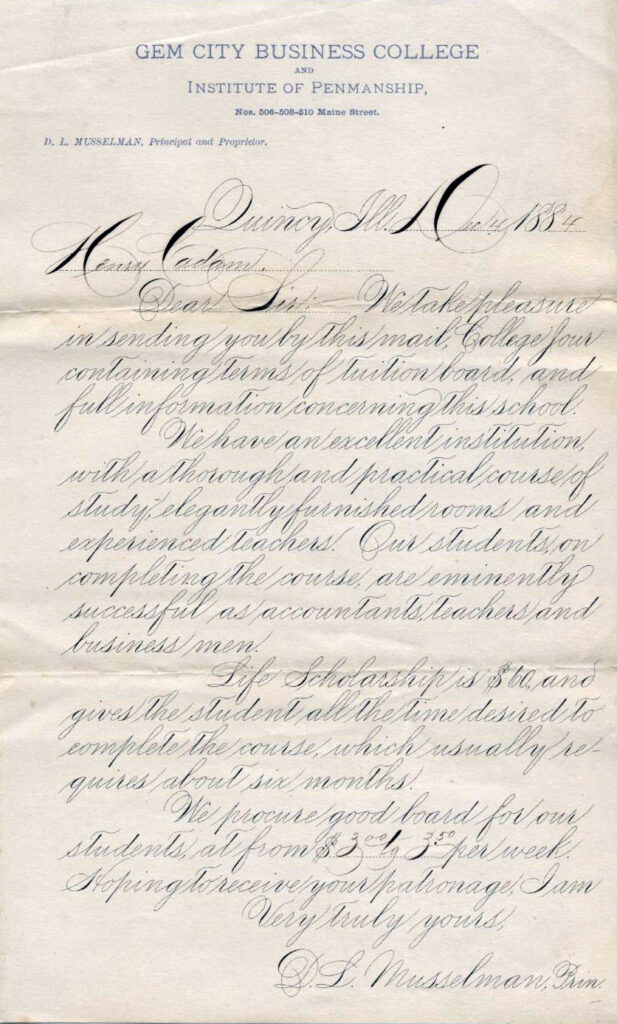 GEM CITY BUSINESS COLLEGE
AND
INSTITUTE OF PENMANSHIP,
Nos. 506-508-510 Maine Street.
D. L. MUSSELMAN, Principal and Proprietor.
Quincy, Ill. Dec 4, 1884
Henry Cadam.
Dear Sir:— We take pleasure
in sending you by this mail, College Jour
containing terms of tuition board, and
full information concerning this school.
We have an excellent institution,
with a thorough and practical course of
study; elegantly furnished rooms and
experienced teachers. Our students, on
completing the course, are eminently
successful as accountants, teachers and
business men.
Life Scholarship is $60, and
gives the student all the time desired to
complete the course, which usually re-
quires about six months.
We procure good board for our
students, at from $3.00 to 3.50 per week.
Hoping to receive your patronage, I am
Very truly yours,
D. L. Musselman, Prin.